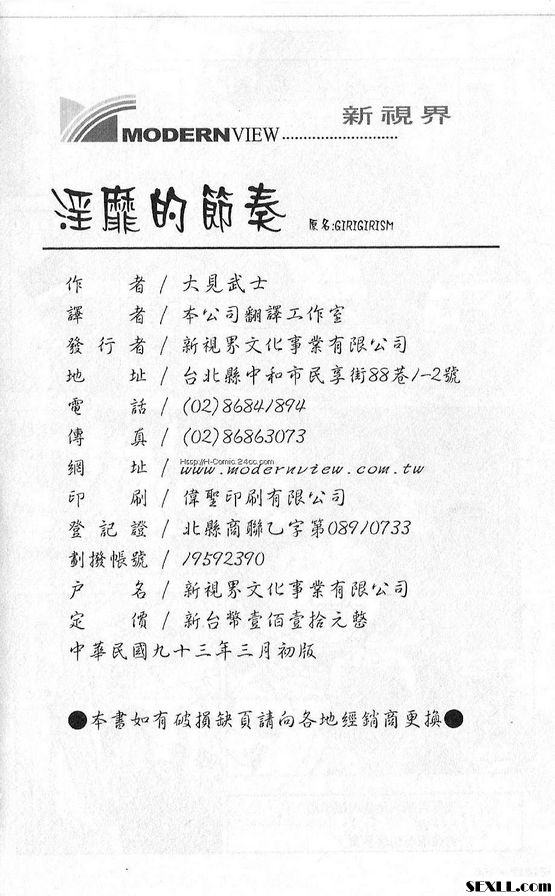 新視界
MODERNVIEW............................
淫靡的節奏 原名:GIRIGIRISM
作者/大見武士
譯者/本公司翻譯工作室
發行者/新視界文化事業有限公司
地址/台北縣中和市民享街88巷1-2號
電話/(02)86841894
傳真/(02)86863073
Http://H-Comic.24cc.com
網址/www.modernview.com.tw
印刷/偉聖印刷有限公司
登記證/北縣商聯乙字第08910733
劃撥帳號/19592390
戶名/新視界文化事業有限公司
定價/新台幣壹佰壹拾元整
中華民國九十三年三月初版
●本書如有破損缺頁請向各地經銷商更換●
SEXLL.com